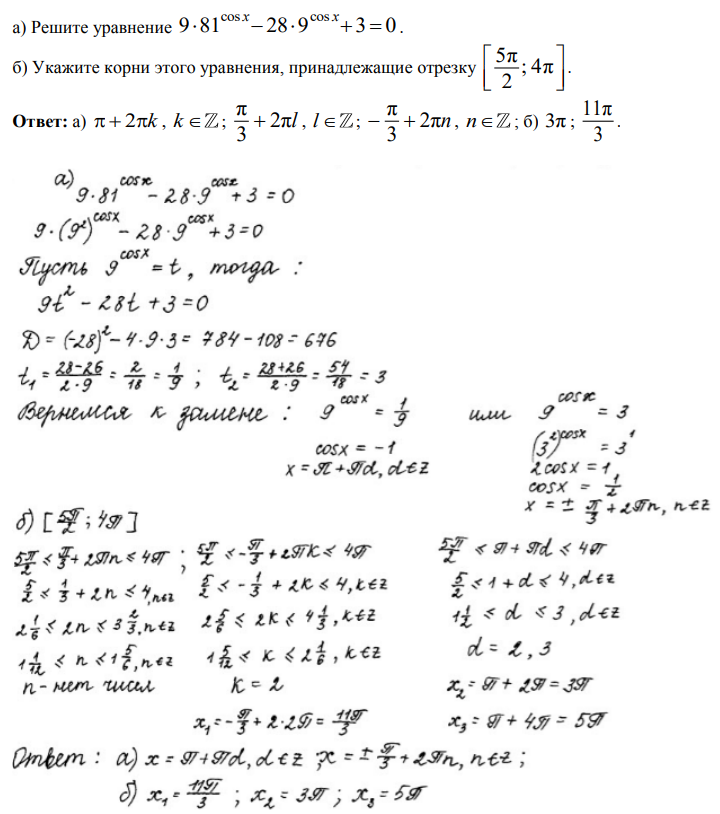 а) Решите уравнение 9·81^cos x − 28·9^cos x + 3 = 0.
б) Укажите корни этого уравнения, принадлежащие отрезку [5π/2; 4π].
Ответ: а) π + 2πk, k ∈ ℤ; π/3 + 2πl, l ∈ ℤ; −π/3 + 2πn, n ∈ ℤ; б) 3π; 11π/3.
а) 9·81^cosx − 28·9^cosx + 3 = 0
9·(9²)^cosx − 28·9^cosx + 3 = 0
Пусть 9^cosx = t, тогда:
9t² − 28t + 3 = 0
D = (−28)² − 4·9·3 = 784 − 108 = 676
t₁ = (28−26)/(2·9) = 2/18 = 1/9 ; t₂ = (28+26)/(2·9) = 54/18 = 3
Вернемся к замене : 9^cosx = 1/9 или 9^cosx = 3
cosx = −1
x = π + πd, d∈z
(3²)^cosx = 3¹
2cosx = 1
cosx = 1/2
x = ± π/3 + 2πn, n∈z
б) [5π/2 ; 4π]
5π/2 ≤ π/3 + 2πn ≤ 4π ; 5π/2 ≤ −π/3 + 2πk ≤ 4π 5π/2 ≤ π + πd ≤ 4π
5/2 ≤ 1/3 + 2n ≤ 4, n∈z 5/2 ≤ −1/3 + 2k ≤ 4, k∈z 5/2 ≤ 1 + d ≤ 4, d∈z
2 1/6 ≤ 2n ≤ 3 2/3, n∈z 2 5/6 ≤ 2k ≤ 4 1/3, k∈z 1 1/2 ≤ d ≤ 3, d∈z
1 1/12 ≤ n ≤ 1 5/6, n∈z 1 5/12 ≤ k ≤ 2 1/6, k∈z d = 2, 3
n - нет чисел k = 2 x₂ = π + 2π = 3π
x₁ = −π/3 + 2·2π = 11π/3 x₃ = π + 4π = 5π
Ответ : а) x = π + πd, d∈z ; x = ± π/3 + 2πn, n∈z ;
б) x₁ = 11π/3 ; x₂ = 3π ; x₃ = 5π